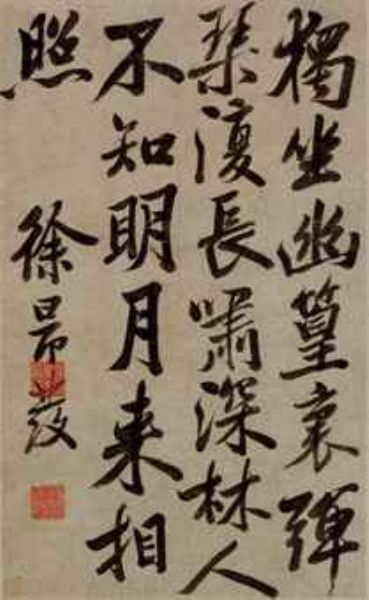 獨坐幽篁裏彈
琴復長嘯深林人
不知明月来相
照
徐昂發